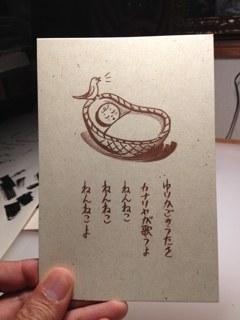 ゆりかごのうたを
カナリヤが歌うよ
ねんねこ
ねんねこ
ねんねこよ